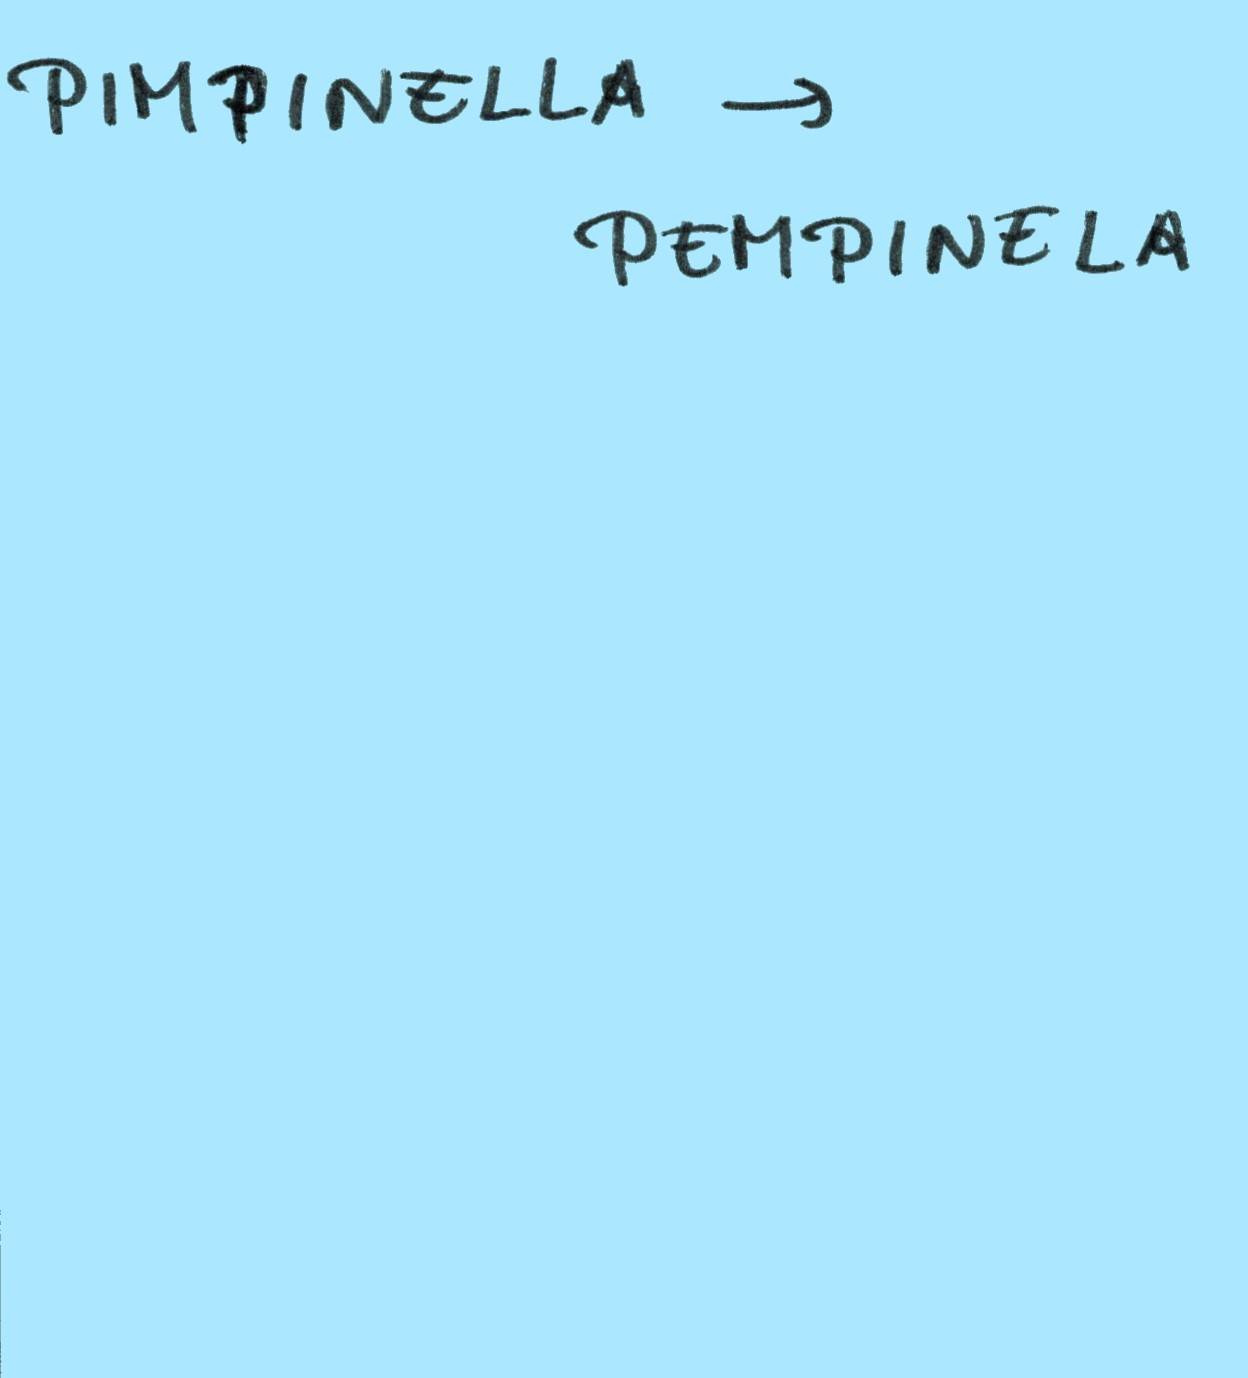 PIMPINELLA →
PEMPINELA